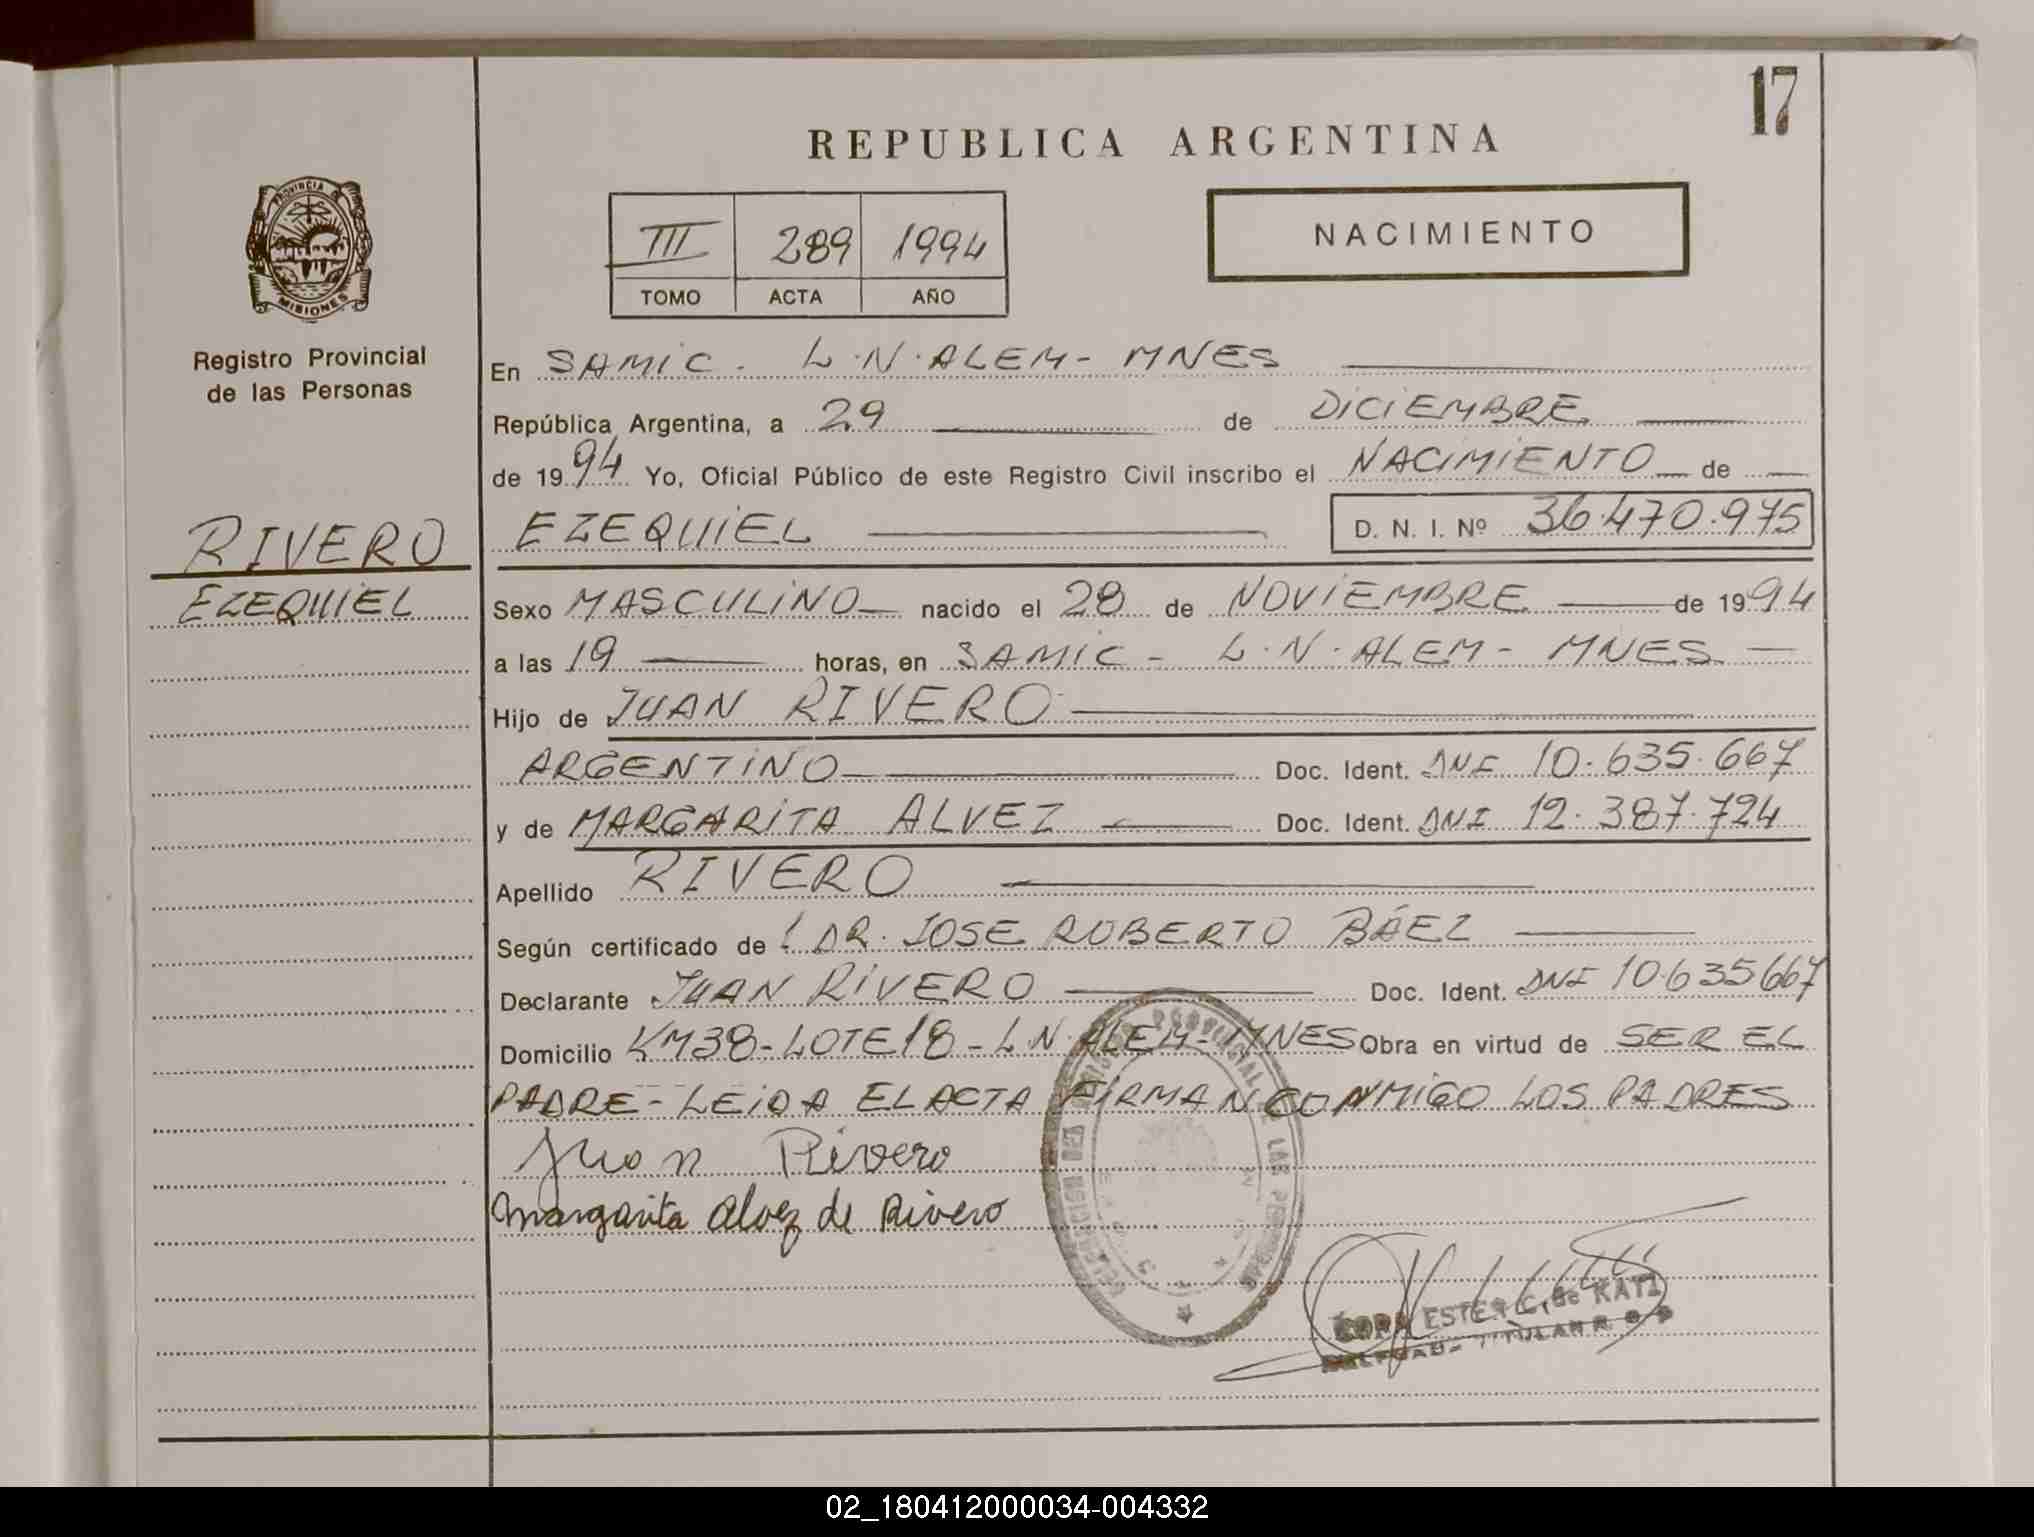 17
REPUBLICA ARGENTINA
III 289 1994
TOMO ACTA AÑO
NACIMIENTO
PROVINCIA
MISIONES
Registro Provincial
de las Personas
RIVERO
EZEQUIEL
En SAMIC. L.N.ALEM- MNES
República Argentina, a 29 de DICIEMBRE
de 1994 Yo, Oficial Público de este Registro Civil inscribo el NACIMIENTO de
EZEQUIEL D. N. I. Nº 36.470.975
Sexo MASCULINO nacido el 28 de NOVIEMBRE de 1994
a las 19 horas, en SAMIC - L.N.ALEM- MNES
Hijo de JUAN RIVERO
ARGENTINO Doc. Ident. DNI 10.635.667
y de MARGARITA ALVEZ Doc. Ident. DNI 12.387.724
Apellido RIVERO
Según certificado de DR. JOSE ROBERTO BÁEZ
Declarante JUAN RIVERO Doc. Ident. DNI 10.635667
Domicilio KM38-LOTE18-L N.ALEM-MNES Obra en virtud de SER EL
PADRE-LEIDA EL ACTA FIRMAN CONMIGO LOS PADRES
Juan Rivero
Margarita Alvez de Rivero
ESTER C. de KATI
TITULAR
02_180412000034-004332